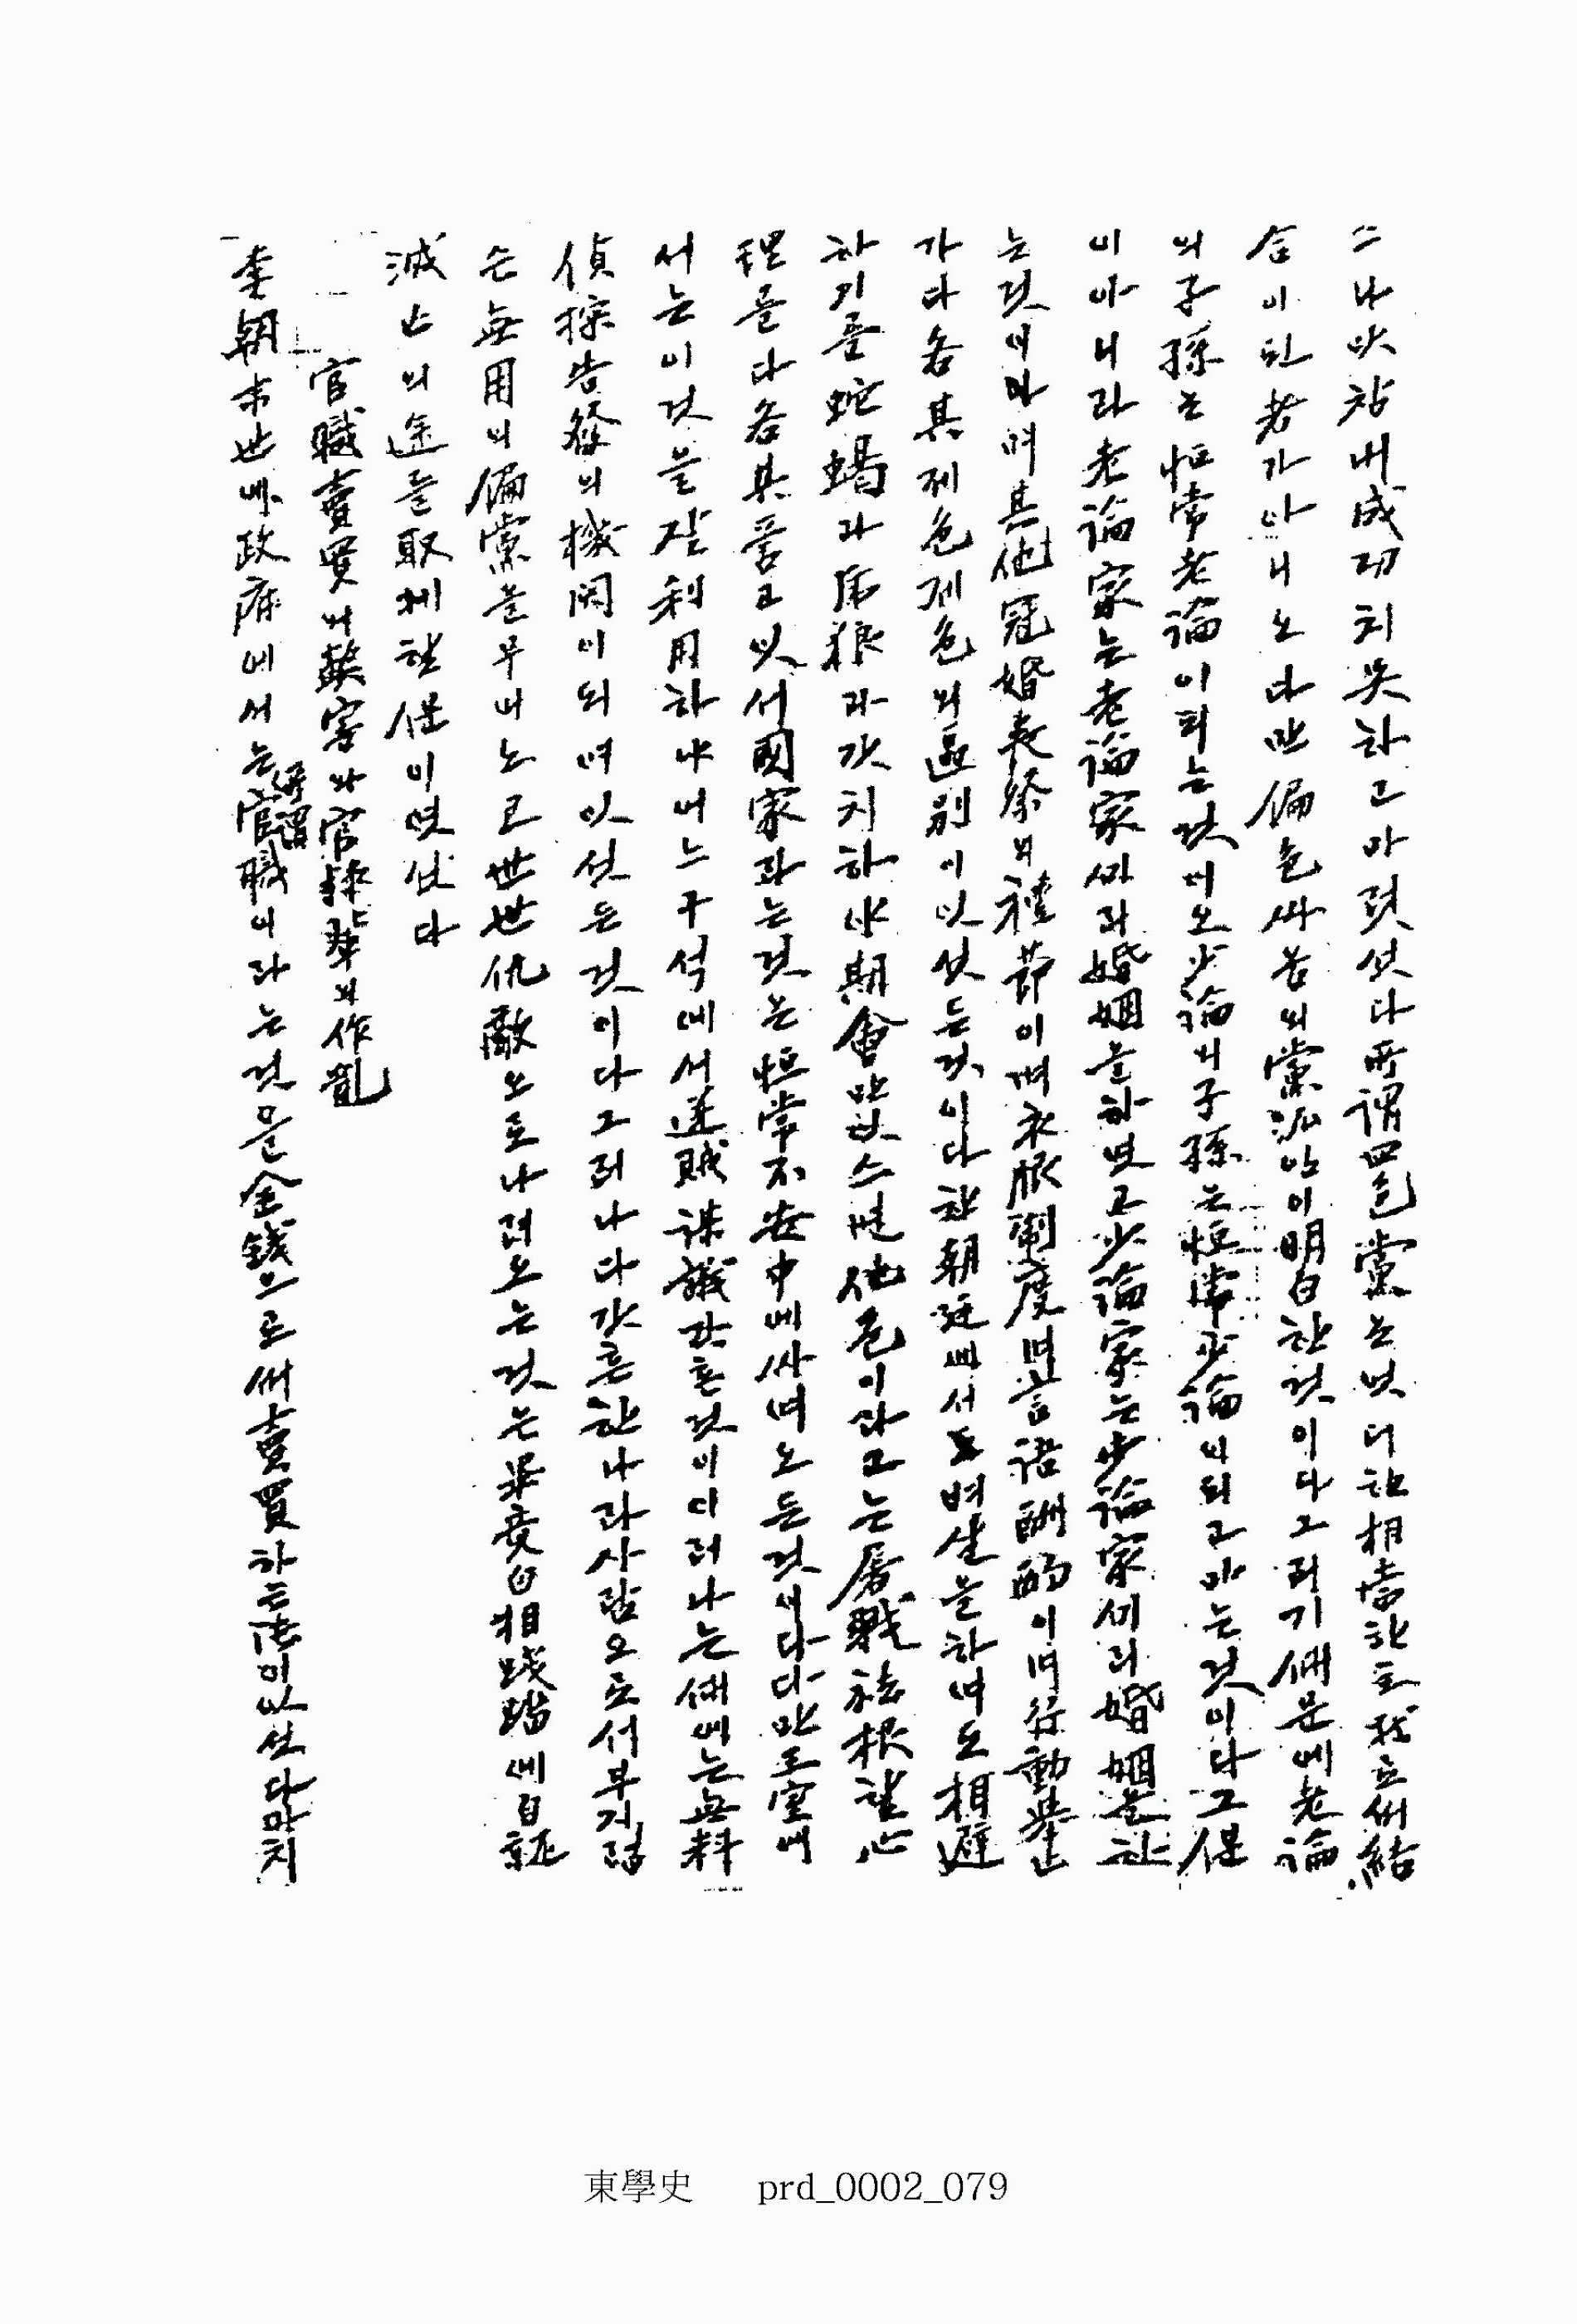 스나 맛참내 成功치 못하고 마럿섯다 所謂 四色黨은 엇더한 相當한 主義로써 結
合이 된 者가 아니노라 만 偏色싸홈의 黨派인이 明白한 것이다 그러기 때문에 老論
의 子孫는 恒常 老論이 되는 것이오 少論의 子孫는 恒常 少論이 되고 마는 것이다 그 僅
이 아니라 老論家는 老論家씨리 婚姻을 하엿고 少論家는 少論家씨리 婚姻을 한
는 것이며 其他 冠婚喪祭의 禮節이며 衣服制度며 言語酬酌이며 行動擧止
가 다 各其 제色 제色의 區別이 잇섯든 것이다 한 朝廷에서 도 벼살을 하며도 相避
하기를 蛇蝎과 虎狼과 갓치 하야 期會만 잇스면 他色이라고는 屠戮 拔根할 心
理를 다 各其 품고 잇서 國家라는 것은 恒常 不安中에 싸며 노든 것이다 다만 王室에
서는 이것을 잘 利用하야 어느 구석에서 逆賊謀議 갓흔 것이 이러나는 때에는 無料
偵探告發의 機関이 되여 잇섯든 것이다 그러나 다 갓흔 한나라 사람으로서 부지럽
슨 無用의 偏黨을 무어노코 世世仇敵으로 나려오는 것은 畢竟 自相踐踏에 自就
滅亡의 途를 取케 할 僅이엿섯다
官職賣買의 弊害와 官隷輩의 作亂
李朝末世에 政府에서는 所謂 官職이라는 것을 金錢으로써 賣買하는 法이 잇섯다 마치
東學史 prd_0002_079